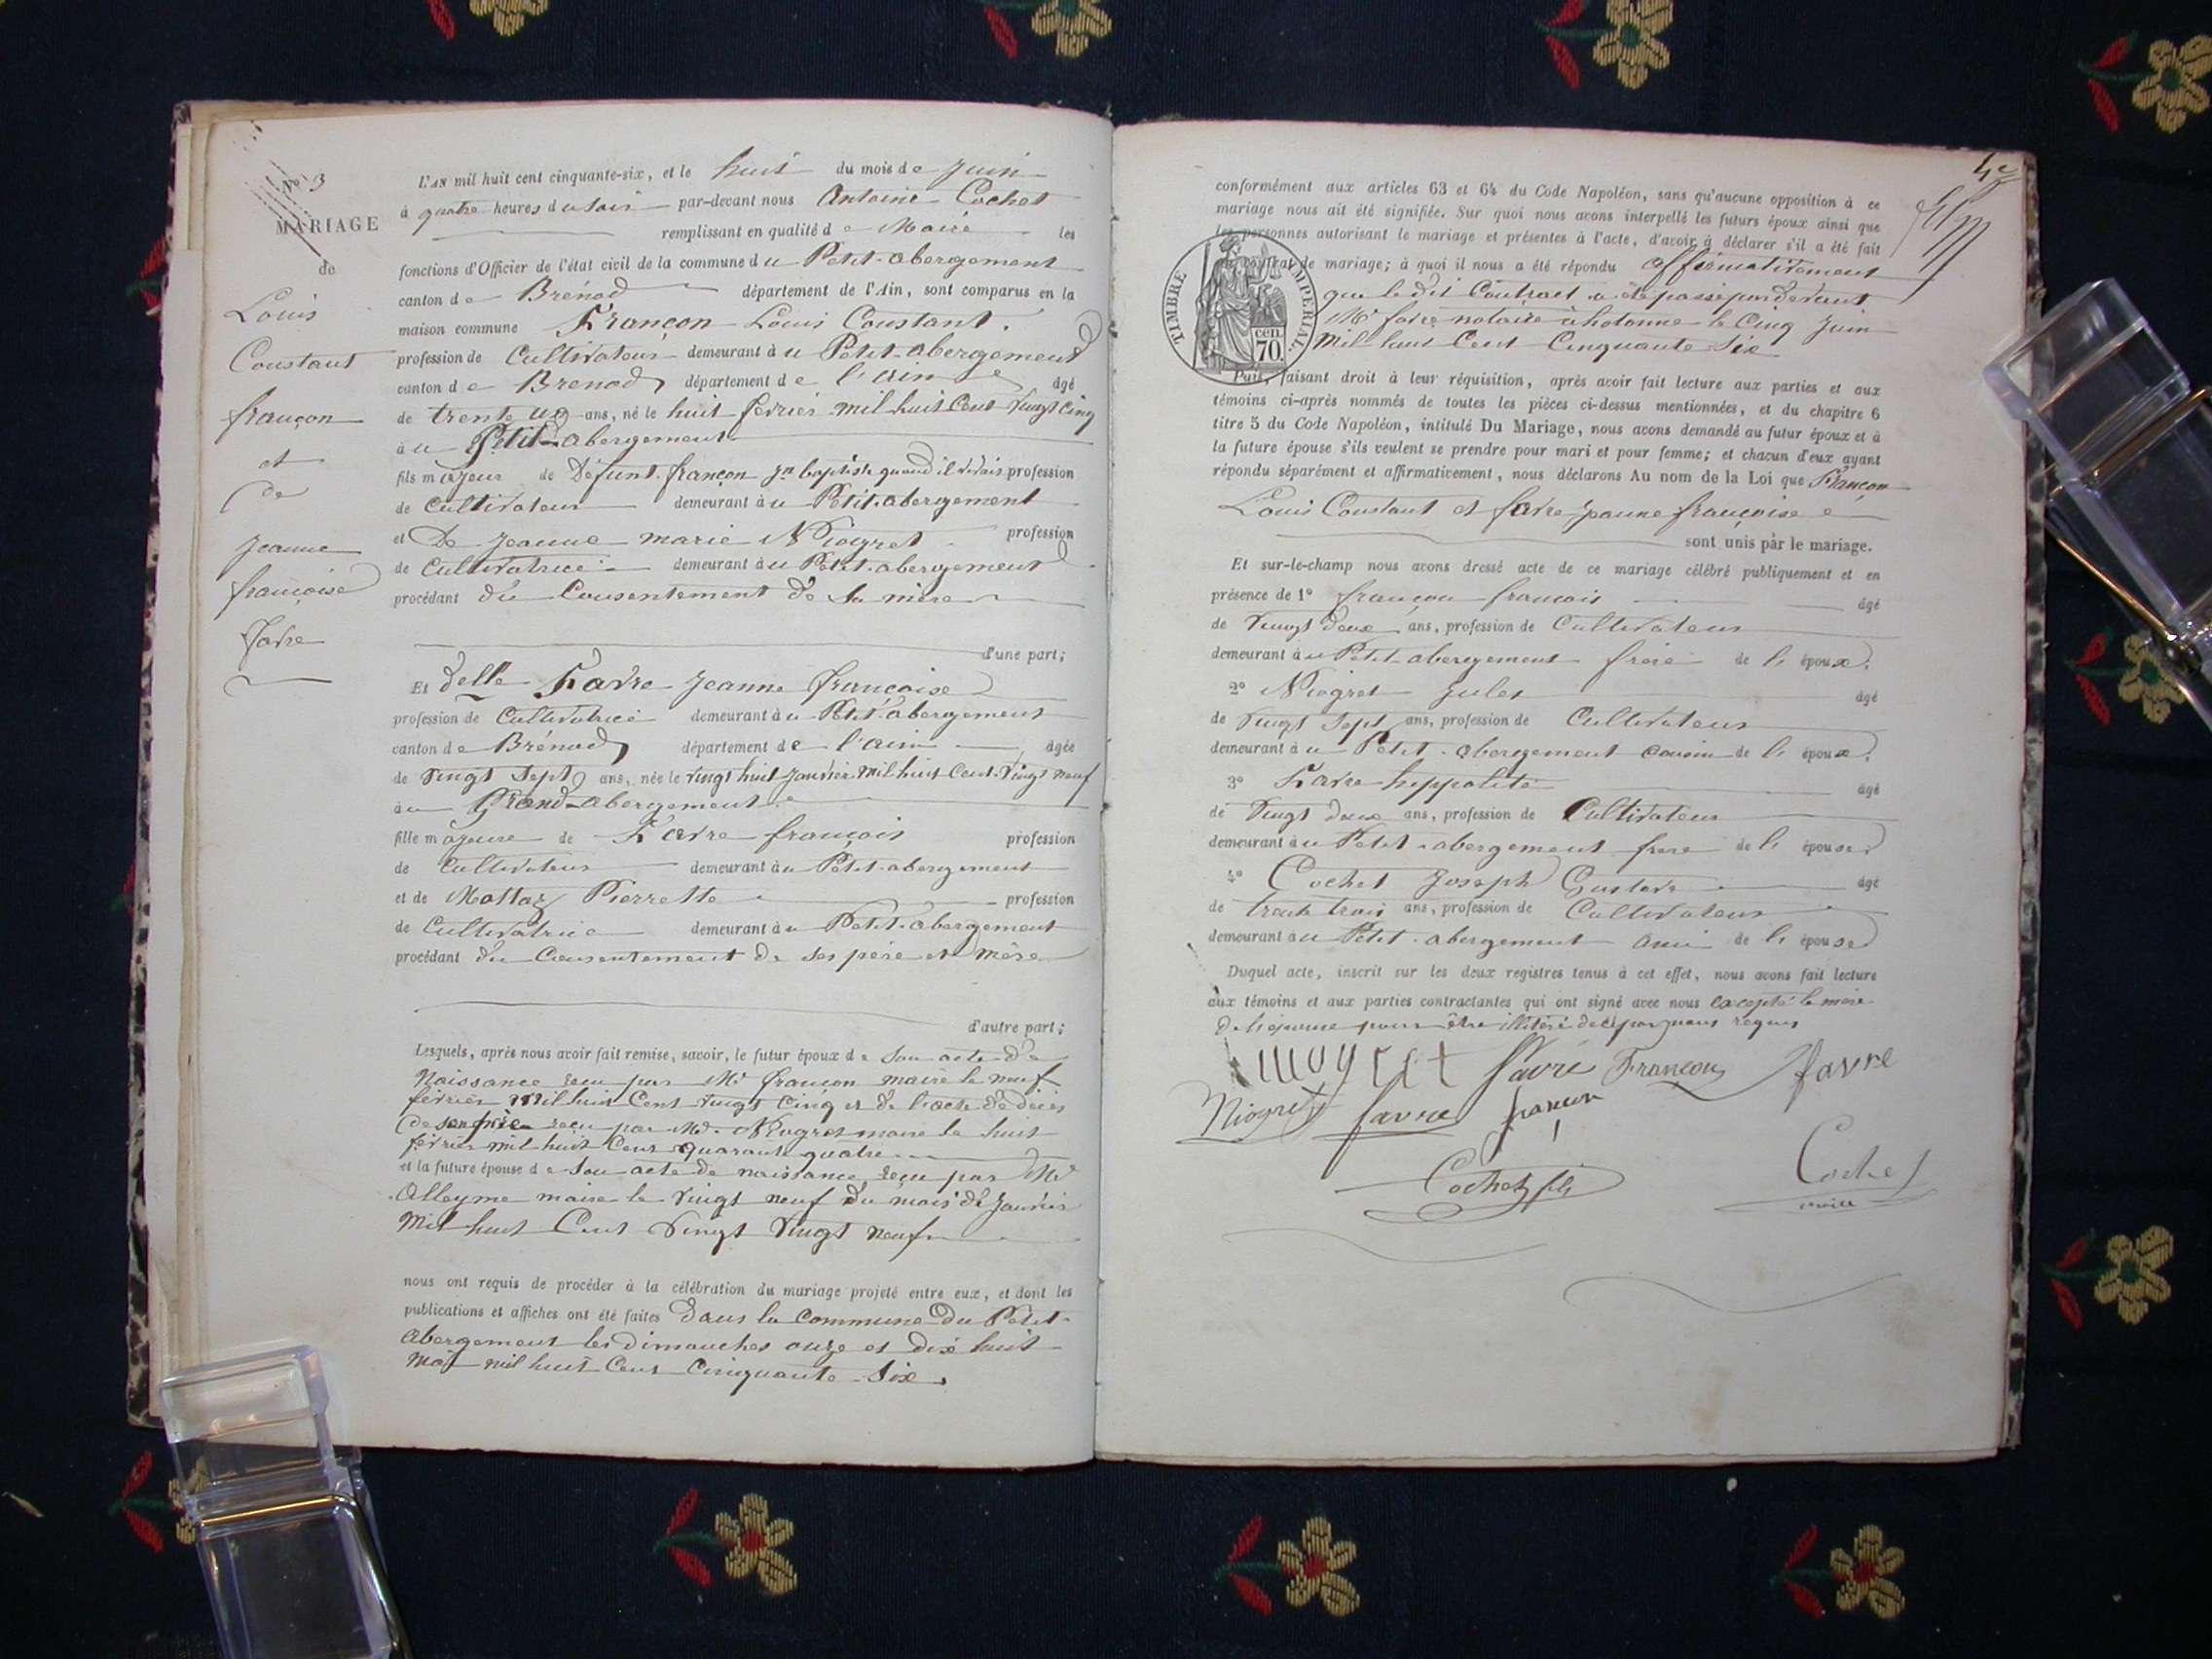 No 3
MARIAGE
de
Louis
Constant
françon
et
de
jeanne
françoise
favre
L'AN mil huit cent cinquante-six, et le huit du mois de juin
à quatre heures du soir par-devant nous Antoine Cochet
remplissant en qualité de Maire les
fonctions d'Officier de l'état civil de la commune du Petit-abergement
canton de Brénod département de l'Ain, sont comparus en la
maison commune Françon Louis Constant.
profession de Cultivateur demeurant au Petit-abergement
canton de Brenod département de l'ain âgé
de trente un ans, né le huit février mil huit Cent vingt cinq
au Petit-abergement
fils majeur de Défunt françon jn baptiste quand il vivais profession
de Cultivateur demeurant au Petit-abergement
et De jeanne marie Niogret profession
de Cultivatrice demeurant au Petit-abergement
procédant du Consentement de sa mère
d'une part;
Et delle Favre jeanne françoise
profession de Cultivatrice demeurant au Petit-abergement
canton de Brénod département de l'ain âgée
de vingt sept ans, née le vingt huit janvier mil huit Cent vingt neuf
au Grand-abergement
fille majeure de Favre françois profession
de Cultivateur demeurant au Petit-abergement
et de Mottaz Pierrette profession
de Cultivatrice demeurant au Petit-abergement
procédant du Consentement de ses père et mère
d'autre part;
Lesquels, après nous avoir fait remise, savoir, le futur époux de son acte de
Naissance reçu par Mr françon maire le neuf
février mil huit Cent vingt Cinq et de l'acte de décès
de son père reçu par Mr. Niogret maire le huit
février mil huit Cent quarante quatre
et la future épouse de son acte de naissance reçu par Mr
Alleyme maire le vingt neuf du mois de janvier
mil huit Cent vingt vingt neuf
nous ont requis de procéder à la célébration du mariage projeté entre eux, et dont les
publications et affiches ont été faites Dans la Commune Du Petit-
abergement les dimanches onze et dix huit
mai mil huit Cent Cinquante Six.
conformément aux articles 63 et 64 du Code Napoléon, sans qu'aucune opposition à ce
mariage nous ait été signifiée. Sur quoi nous avons interpellé les futurs époux ainsi que
les personnes autorisant le mariage et présentes à l'acte, d'avoir à déclarer s'il a été fait
contrat de mariage; à quoi il nous a été répondu affirmativement
que le dit Contract a été passé par devant
Mr favre notaire à hotonne le Cinq juin
mil huit Cent Cinquante Six
TIMBRE IMPÉRIAL.
cen. 70.
Puis, faisant droit à leur réquisition, après avoir fait lecture aux parties et aux
témoins ci-après nommés de toutes les pièces ci-dessus mentionnées, et du chapitre 6
titre 5 du Code Napoléon, intitulé Du Mariage, nous avons demandé au futur époux et à
la future épouse s'ils veulent se prendre pour mari et pour femme; et chacun d'eux ayant
répondu séparément et affirmativement, nous déclarons Au nom de la Loi que Françon
Louis Constant et favre jeanne françoise
sont unis par le mariage.
Et sur-le-champ nous avons dressé acte de ce mariage célébré publiquement et en
présence de 1° françon francois âgé
de vingt deux ans, profession de Cultivateur
demeurant au Petit-abergement frère de l' époux.
2° Niogret jules âgé
de vingt sept ans, profession de Cultivateur
demeurant au Petit-abergement cousin de l' époux.
3° Favre hyppolite âgé
de vingt deux ans, profession de Cultivateur
demeurant au Petit-abergement frere de l' épouse
4° Cochet Joseph Gustave âgé
de trente trois ans, profession de Cultivateur
demeurant au Petit-abergement ami de l' épouse
Duquel acte, inscrit sur les deux registres tenus à cet effet, nous avons fait lecture
aux témoins et aux parties contractantes qui ont signé avec nous excepté la mère
De l'épouse pour être illitéré de ce par nous requis
niogret favre Françon favre
Niogret favre françon
Cochet fils
Cochet
maire